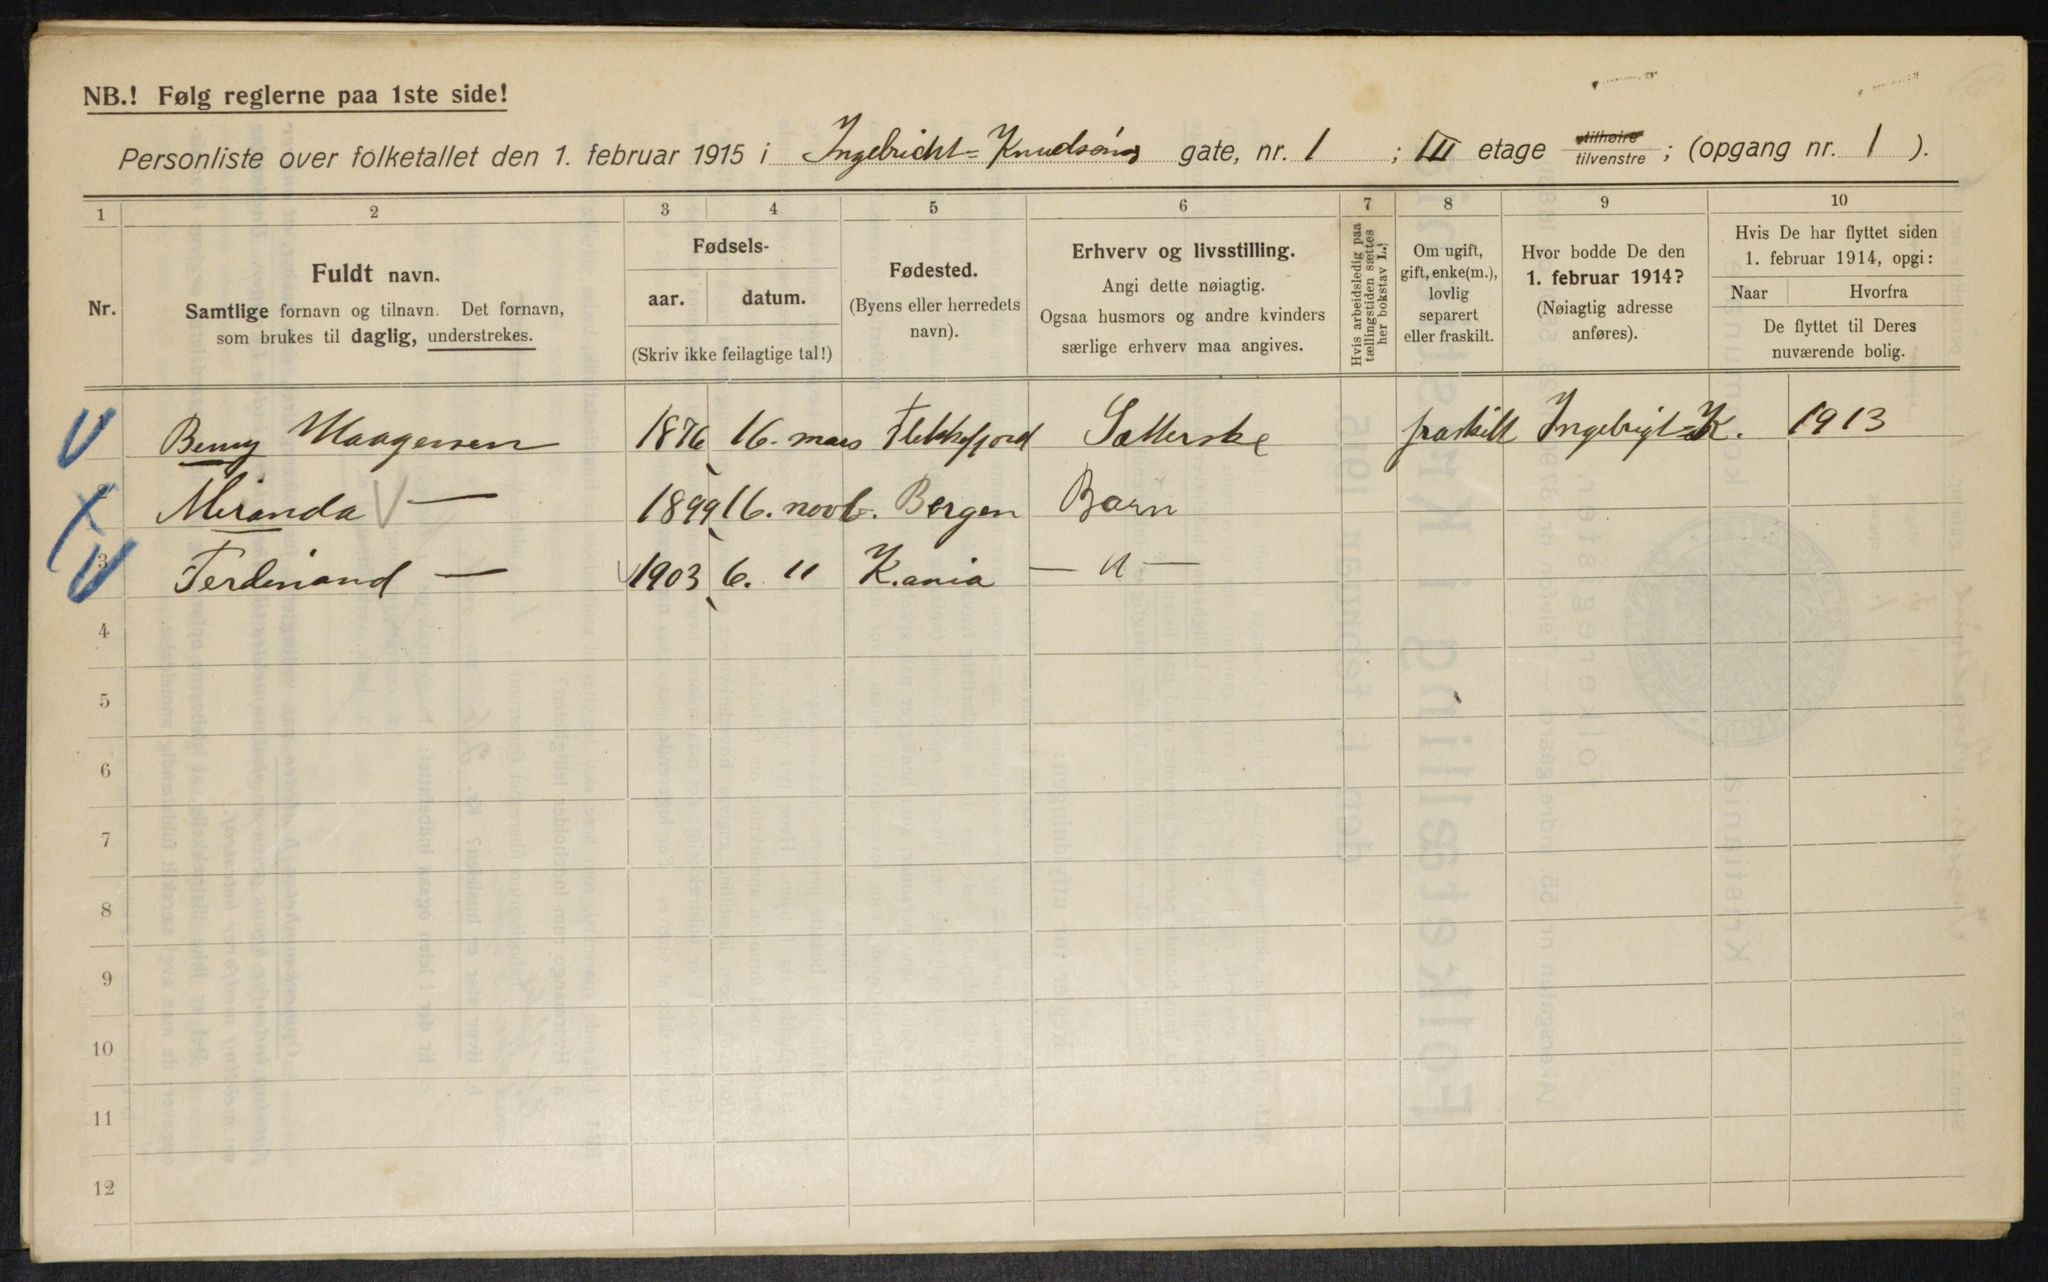 NB.! Følg reglerne paa 1ste side!
Personliste over folketallet den 1. februar 1915 i Ingebricht-Knudsøns gate, nr. 1 ; III etage tilhøire tilvenstre ; (opgang nr. 1 ).
1 2 3 4 5 6 7 8 9 10
Nr.
Fuldt navn.
Samtlige fornavn og tilnavn. Det fornavn,
som brukes til daglig, understrekes.
Fødsels-
aar. datum.
(Skriv ikke feilagtige tal!)
Fødested.
(Byens eller herredets
navn).
Erhverv og livsstilling.
Angi dette nøiagtig.
Ogsaa husmors og andre kvinders
særlige erhverv maa angives.
Hvis arbeidsledig paa
tællingstiden sættes
her bokstav L.
Om ugift,
gift, enke(m.),
lovlig
separert
eller fraskilt.
Hvor bodde De den
1. februar 1914?
(Nøiagtig adresse
anføres).
Hvis De har flyttet siden
1. februar 1914, opgi:
Naar Hvorfra
De flyttet til Deres
nuværende bolig.
Benny Haagensen 1876 16. mars Flekkefjord Sætterske fraskilt Ingebrigt-K. 1913
Miranda — 1899 16. novb. Bergen Barn
3 Ferdinand — 1903 6. 11 K.ania — " —
4
5
6
7
8
9
10
11
12